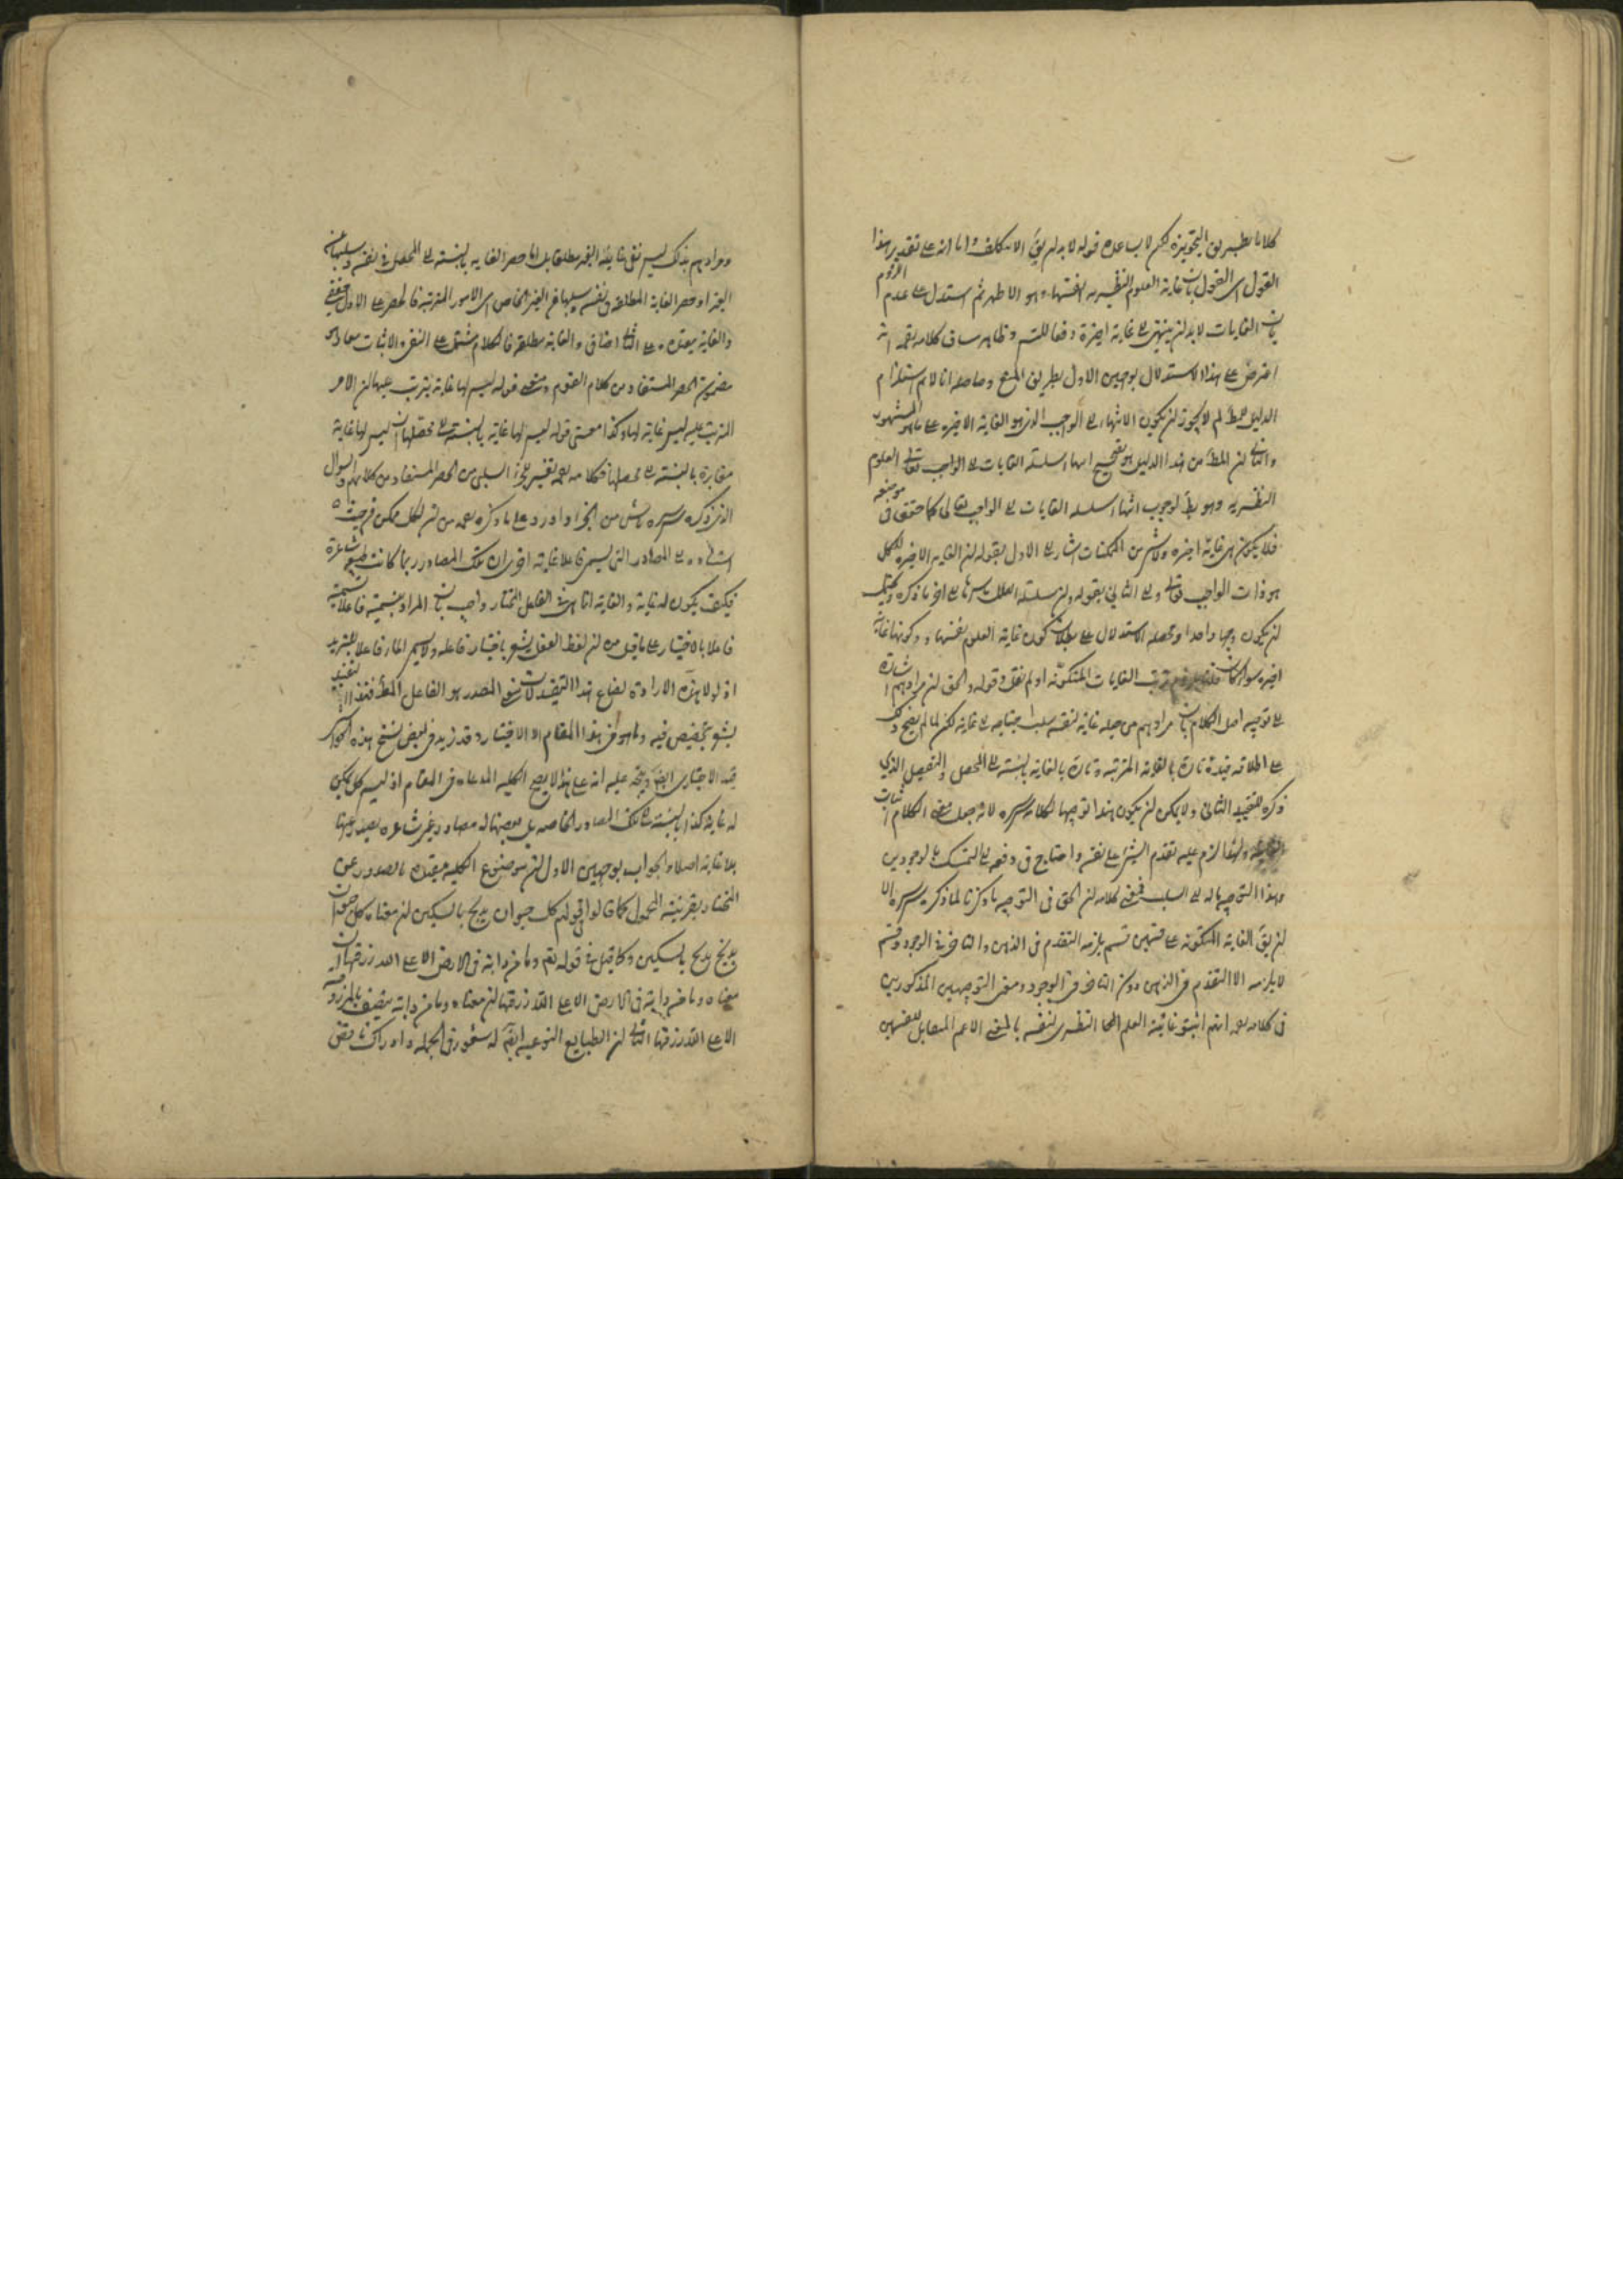 كلاما بطريق التجويز لكن لا يساعده قوله لا بد لم يق الا بتكلف واما انه على تقدير هذا
القول اى القول بان غاية العلوم النظرية انفسها وهو الاظهر ثم استدل على عدم اللزوم
بان الغايات لابد لن ينتهى الى غاية اخيرة دفعا للتس وظاهر سياق كلامه يقتضى انه
اعترض على هذا الاستدلال بوجهين الاول بطريق المنع وحاصله انا لا نم استلزام
الدليل للمط لم لا يجوز لن يكون الانتهاء الى الواجب الذى هو الغاية الاخيرة على ما هو المشهور
والثانى لن المط من هذا الدليل هو انتهاء سلسلة الغايات الى الواجب تعالى العلوم
النظرية وهو بط لوجوب انتهاء سلسلة الغايات الى الواجب تعالى كما حقق فى موضعه
فلا يكون هى غاية اخيرة ولا شئ من الممكنات اشار الى الاول بقوله لن الغاية الاخيرة للكل
هو ذات الواجب تعالى والى الثانى بقوله ولن سلسلة العلل باسرها الى اخر ما ذكره ويمكن
لن يكون وجها واحدا ومحصله الاستدلال على بطلان كون غاية العلوم نفسها وكونها غاية
اخيرة ترتب الغايات المتكونة او لم نقل وقوله والحق لن مرادهم اشارة
الى توجيه اصل الكلام بان مرادهم من جعله غاية لنفسه سلب احتياجه الى غاية لكن لما لم يصح ذلك
على اطلاقه قيده تارة بالغاية المترتبة وتارة بالغاية بالنسبة الى المحصل والتفصيل الذى
ذكره للتقييد الثانى ولا يمكن لن يكون هذا توجيها لكلامه قدس سره لانه جعل معنى الكلام اثبات
ولهذا لزم عليه تقدم الشئ على نفسه واحتاج فى دفعه الى التمسك بالوجودين
وهذا التوجيه مآله الى السلب فمعنى كلامه لن الحق فى التوجيه ما ذكرنا لا ما ذكره قدس سره الا
لن يق الغاية المتكونة على قسمين قسم يلزمه التقدم فى الذهن والتاخر فى الوجود وقسم
لا يلزمه الا التقدم فى الذهن دون التاخر فى الوجود ومعنى التوجيهين المذكورين
فى كلامه بعد انهم اثبتوا غائية العلم النظرى لنفسه بالمعنى الاعم المقابل للقسمين
ومرادهم بذلك ليس نفى غائية الغير مطلقا بل اما حصر الغاية بالنسبة الى المحصل فى نفسه وسلبها عن
الغير او حصر الغاية المطلقة فى نفسه وسلبها عن الغير الخاص اى الامور المترتبة فالحصر على الاول حقيقى
والغاية مقيدة وعلى الثانى اضافى والغاية مطلقة فالكلام مشتمل على النفى والاثبات معا وهو
مضمون الحصر المستفاد من كلام القوم ومعنى قوله ليس لها غاية يترتب عليها لن الامر
المترتب عليه ليس غاية لها وكذا معنى قوله ليس لها غاية بالنسبة الى محصلها ان ليس لها غاية
مغايرة بالنسبة الى محصلها فكلامه بعد تفسير للجزء السلبى من الحصر المستفاد من كلامهم والسؤال
الذى ذكره قدس سره ناش من الجزء او اورد على ما ذكره بعد من لن لكل ممكن غاية
الى المصادر التى ليس فاعلا غاية اخرى لان تلك المصادر ربما كانت طبيعة غير شاعرة
فكيف يكون له غاية والغاية انما هى فى الفاعل المختار واجيب بان المراد بتسميته فاعلا تسميته
فاعلا بالاختيار على ما قيل من لن لفظ الفعل يشعر باختيار فاعله ولا يسمى النار فاعلا للتبريد
اذ لولا هذه الارادة لضاع هذا التقييد لان المصدر هو الفاعل المط فتقييد
يشعر بتخصيص فيه وما هو فى هذا المقام الا الاختيار وقد زيد فى بعض نسخ هذه الحواشى
قيد الاختيارى ايضا ويتجه عليه انه على هذا لا يصح الكلية المدعاة فى المقام اذ ليس كل ممكن
له غاية كذا بالنسبة الى تلك المصادر الخاصة بل بعضها له مصادر غير شاعرة يصدر عنها
بلا غاية اصلا والجواب بوجهين الاول لن موضوع الكلية مقيدة بالصدور عن
المختار بقرينة المحمول كما قالوا فى قولهم كل حيوان يذبح بالسكين لن معناه كل حيوان
يذبح يذبح بالسكين وكما قيل فى قوله تعالى وما من دابة فى الارض الا على الله رزقها لن
معناه وما من دابة فى الارض الا على الله رزقها لن معناه وما من دابة متصف بالمرزوقية
الا على الله رزقها الثانى لن الطبايع النوعية ايضا له شعور فى الجملة وادراك ناقص